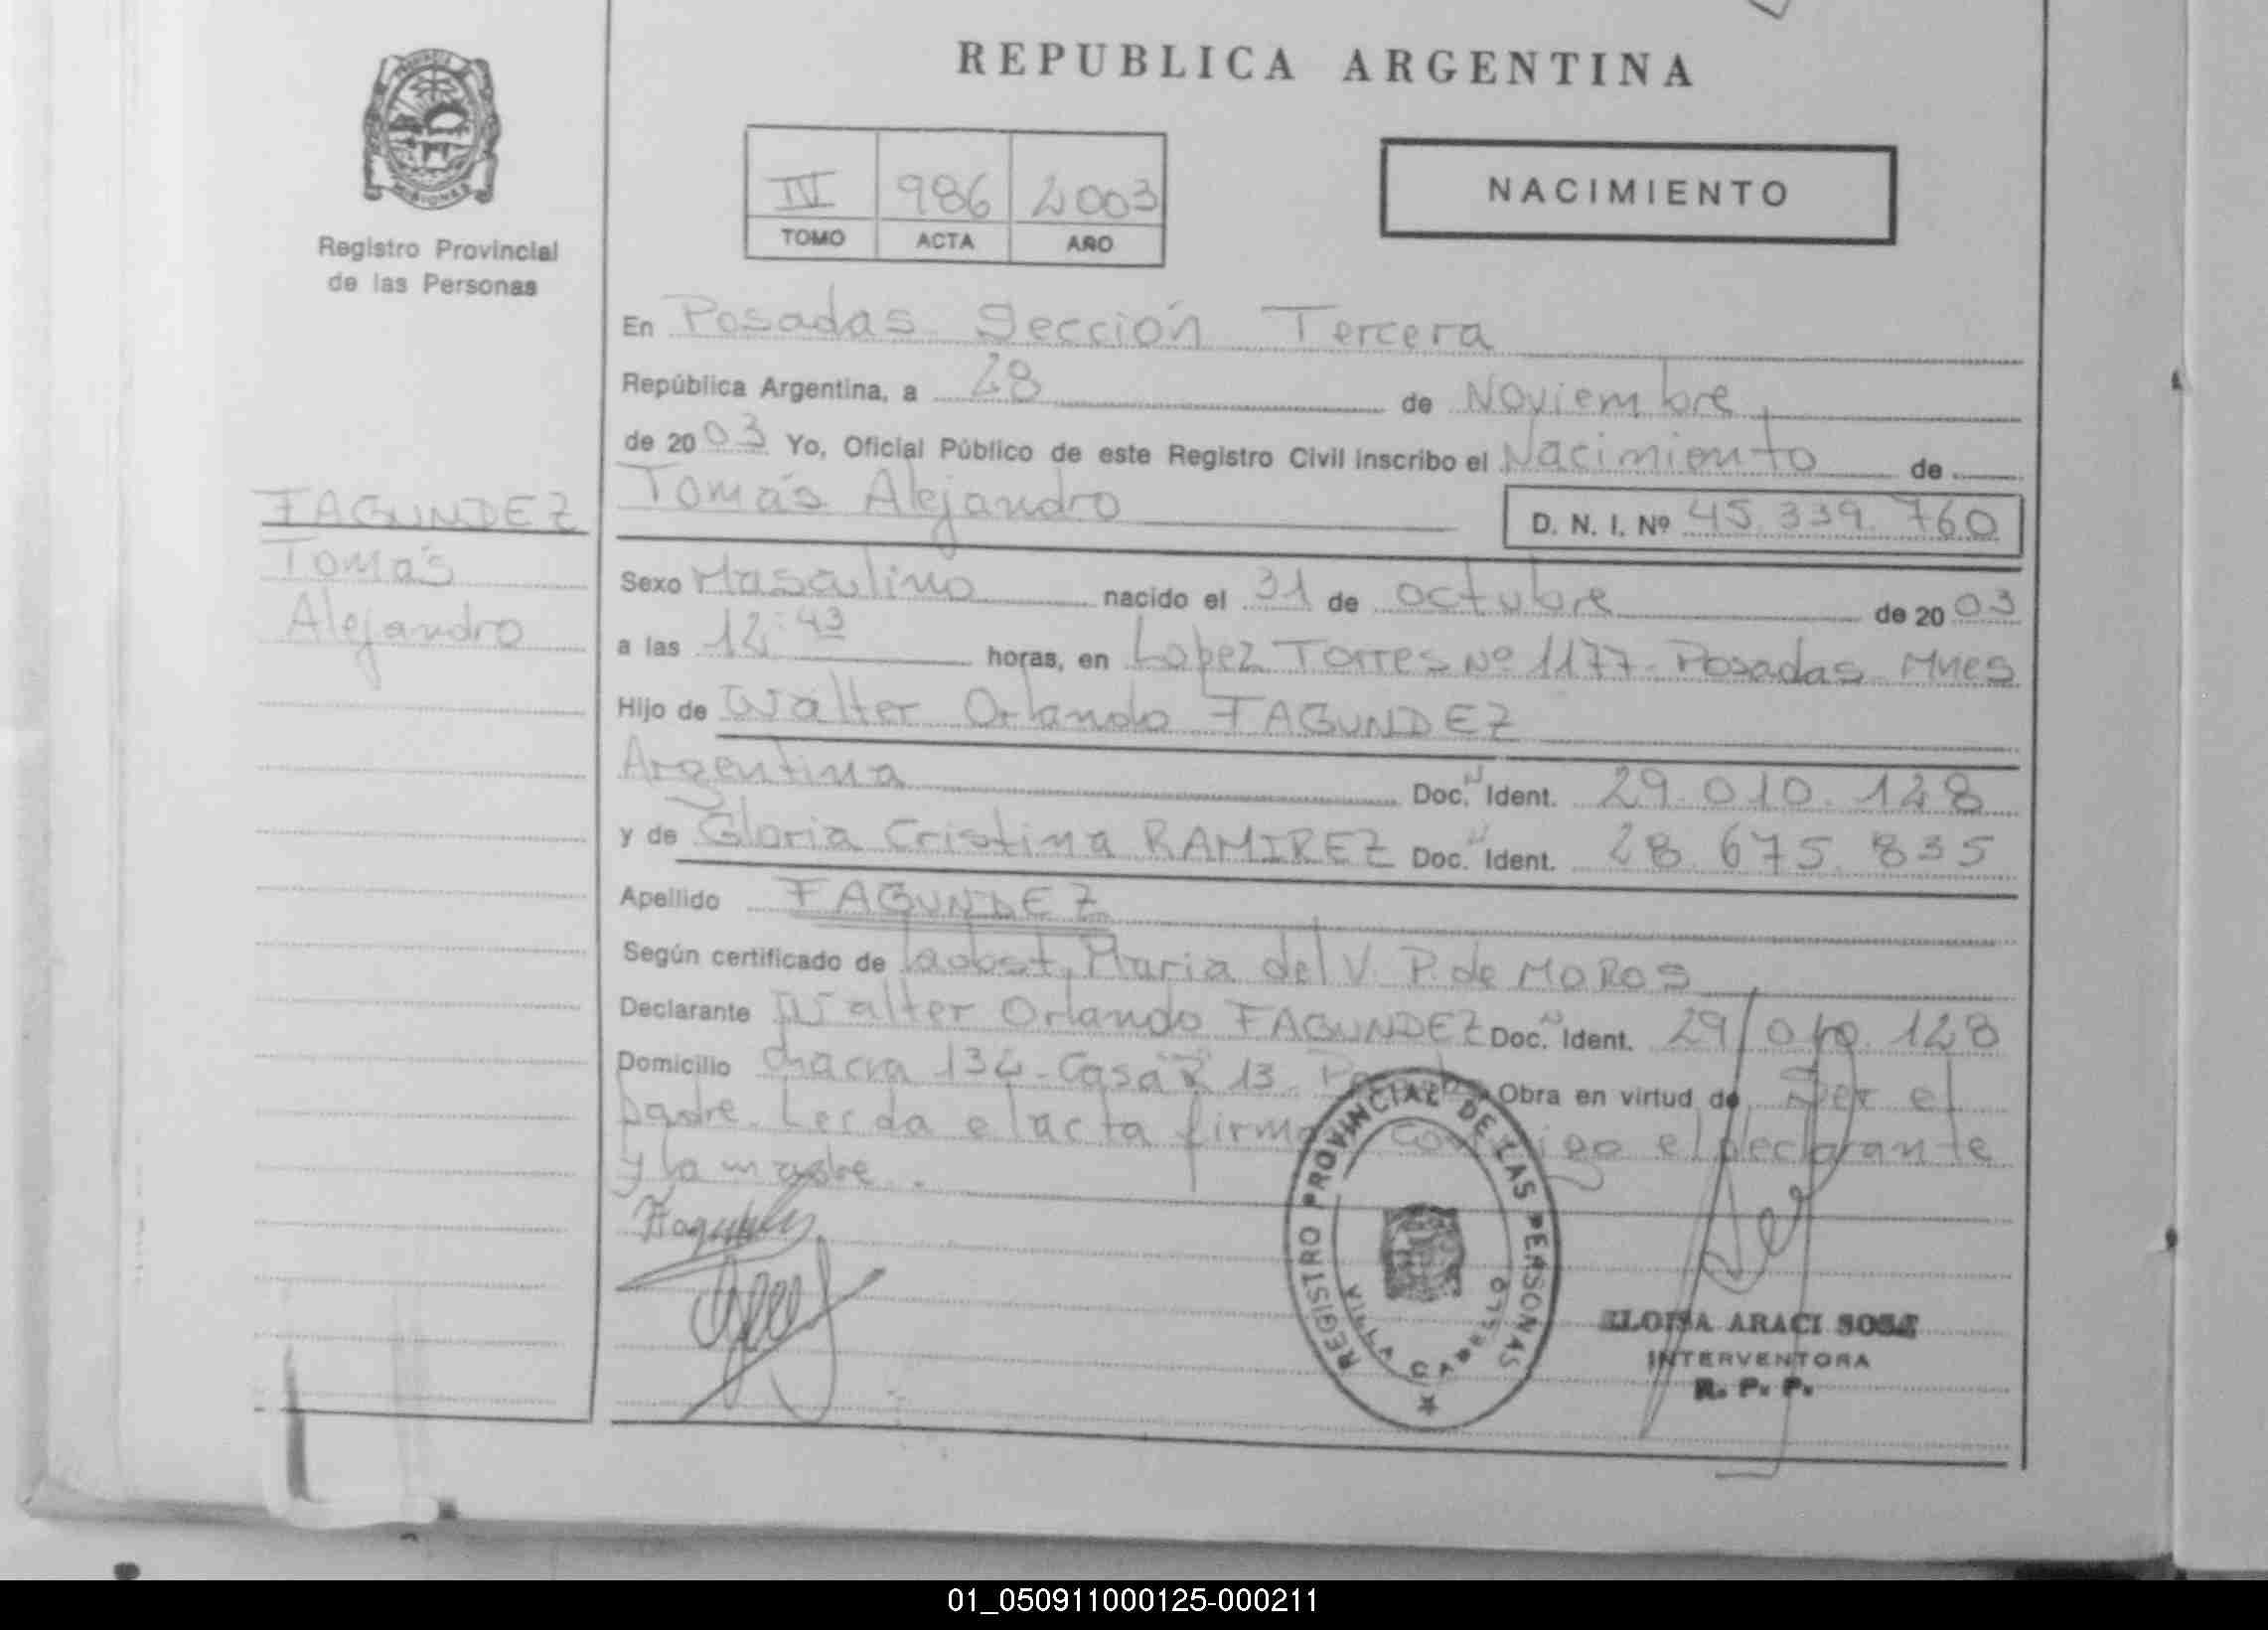 REPUBLICA ARGENTINA
MISIONES
Registro Provincial
de las Personas
IV 986 2003
TOMO ACTA AÑO
NACIMIENTO
En Posadas Sección Tercera
República Argentina, a 28 de Noviembre
de 2003 Yo, Oficial Público de este Registro Civil inscribo el Nacimiento de
Tomás Alejandro D. N. I. Nº 45.339.760
FAGUNDEZ
Tomás
Alejandro
Sexo Masculino nacido el 31 de octubre de 2003
a las 12:43 horas, en Lopez Torres Nº 1177-Posadas Mnes
Hijo de Walter Orlando FAGUNDEZ
Argentina Doc. Ident. 29.010.128
y de Gloria Cristina RAMIREZ Doc. Ident. 28.675.835
Apellido FAGUNDEZ
Según certificado de la obst. Maria del V. P. de MOROS
Declarante Walter Orlando FAGUNDEZ Doc. Ident. 29.010.128
Domicilio chacra 134-Casa 13. Obra en virtud de Ser el
padre. Leída el acta firma conmigo el declarante
y la madre.
REGISTRO PROVINCIAL DE LAS PERSONAS
VILLA CABELLO
ELOISA ARACI SOSA
INTERVENTORA
R. P. P.
01_050911000125-000211